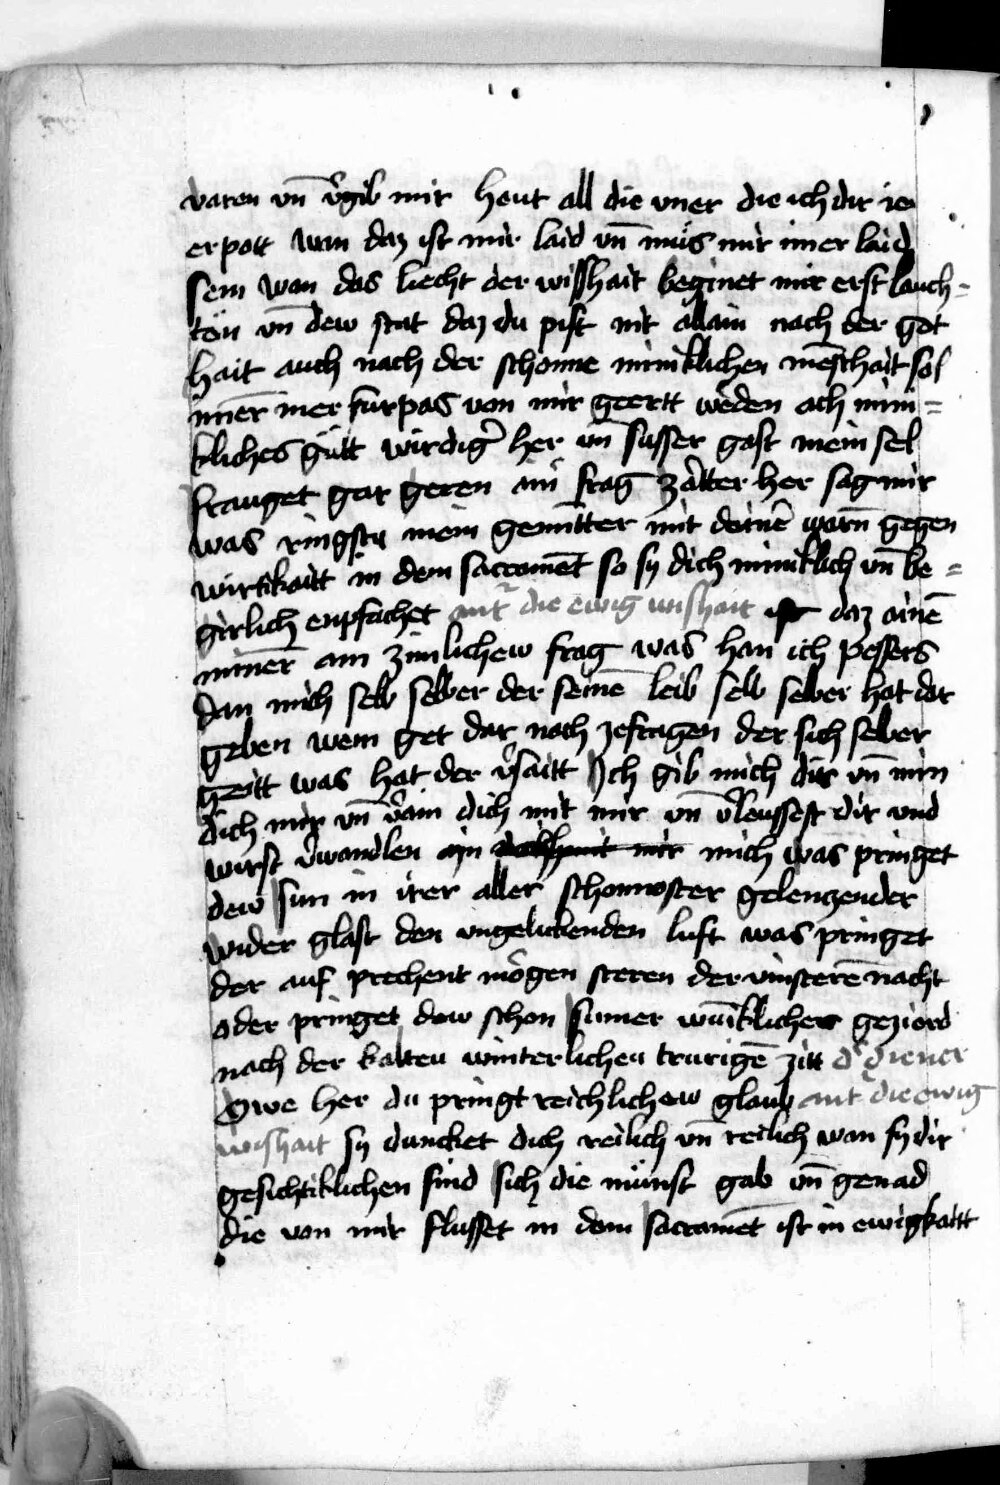 varen vn̄ v̉gib mir heut all die vner die ich dir ie
erpott wan daz ist mir laid vn̄ mu̇s mir imer laid
sein wan das liecht der wisshait beginet mir erst lauch=
ten vn̄ dew stat daz du pist nit allain nach der got
hait auch nach der schonne miniklichen mēschait sol
imer mer furpas von mir geertt weden ach mini=
kliches gu̇tt wirdig̉ her vn̄ susser gast mein sel
frauget gar geren ain frag zartter her sag mir
was ringstu mein gemu̇tter mit deinē warn gegen
wirtikaitt in dem sacramēt so sy dich miniklich vn̄ be=
girlich enpfachet ant̉ die ewig wishait ist daz ainē
minner ain zimlichew frag was han ich pessers
dan mich selb selber der seinē leib selb selber hat dar
geben wem get dar nach zefragen der sich selber
geitt was hat der v̉saitt Ich gib mich dir vn̄ nim
dich mir vn̄ v̉ain dich mit mir vn̄ v̉leussest dir vnd
wirst v̉wandlen in mich was pringet
dew sun in irer aller schonnoster gelenczender
wider glast den vngelickenden luft was pringet
der auf prechent mo̊gen steren der vinsterē nacht
oder pringet dew schon sumer wuniklicher gezierd
nach der kalten winterlichen trurigē zitt d̉ diener
Owe her du pringt reichlichew glaub ant̉ die ewig
wishait sy duncket dich reilich vn̄ reilich wan sy dir
gesichtiklichen sind sich die minst gab vn̄ genad
die von mir flusset in dem sacramēt ist in ewigkaitt